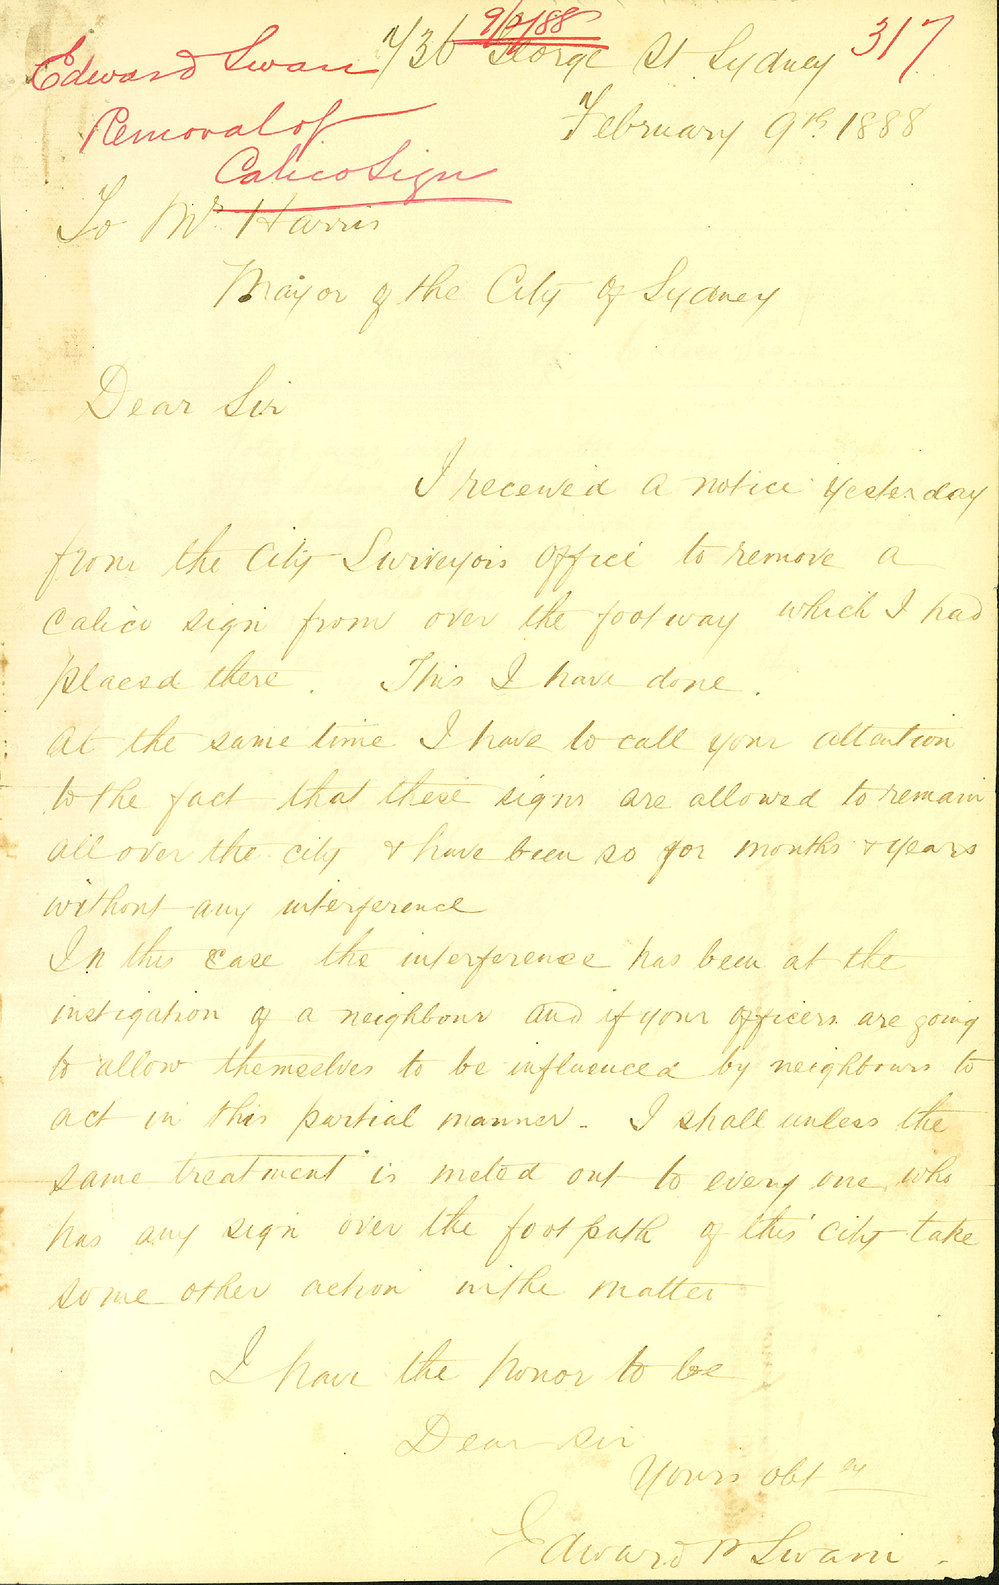 9/2/88
317
Edward Swan
Removal of
Calico Sign
736 George St Sydney
February 9th 1888
To Mr Harris
Mayor of the City of Sydney
Dear Sir
I received a notice yesterday
from the City Surveyors Office to remove a
calico sign from over the footway which I had
placed there. This I have done.
At the same time I have to call your attention
to the fact that these signs are allowed to remain
all over the city & have been so for months & years
without any interference
In this case the interference has been at the
instigation of a neighbour and if your officers are going
to allow themselves to be influenced by neighbours to
act in this partial manner - I shall unless the
same treatment is meted out to every one who
has any sign over the footpath of this city take
some other action in the matter
I have the honor to be
Dear sir
Yours obt
Edward Swann